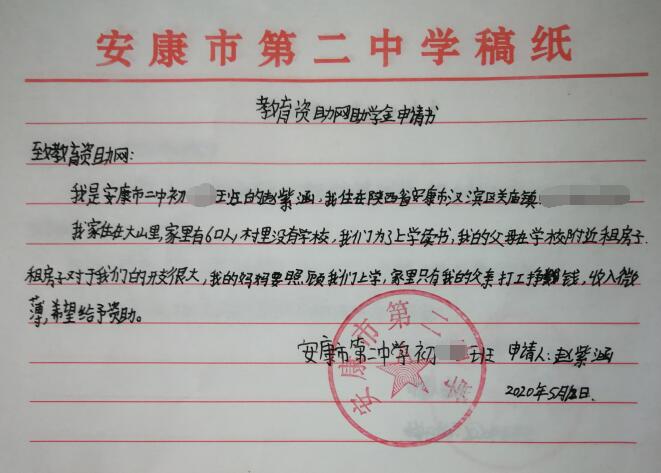 安康市第二中学稿纸
教育资助网助学金申请书
致教育资助网:
我是安康市二中初 班的赵紫涵,我住在陕西省安康市汉滨区关庙镇
我家住在大山里,家里有6口人,村里没有学校,我们为了上学读书,我的父母在学校附近租房子.
租房子对于我们的开支很大,我的妈妈要照顾我们上学,家里只有我的父亲打工挣钱,收入微
薄,希望给予资助。
安康市第二中学初 班 申请人:赵紫涵
2020年5月 日.
安康市第二中学